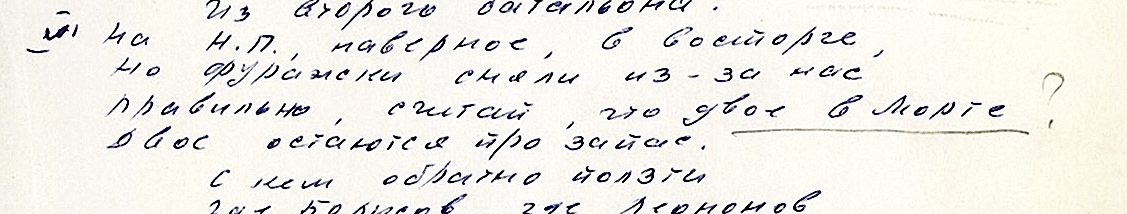 из второго батальона.
VIII На Н.П., наверное, в восторге,
но фуражки сняли из-за нас
правильно, считай, что двое в морге ?
двое остаются про запас.
с кем обратно ползти
где Борисов, где Леонов